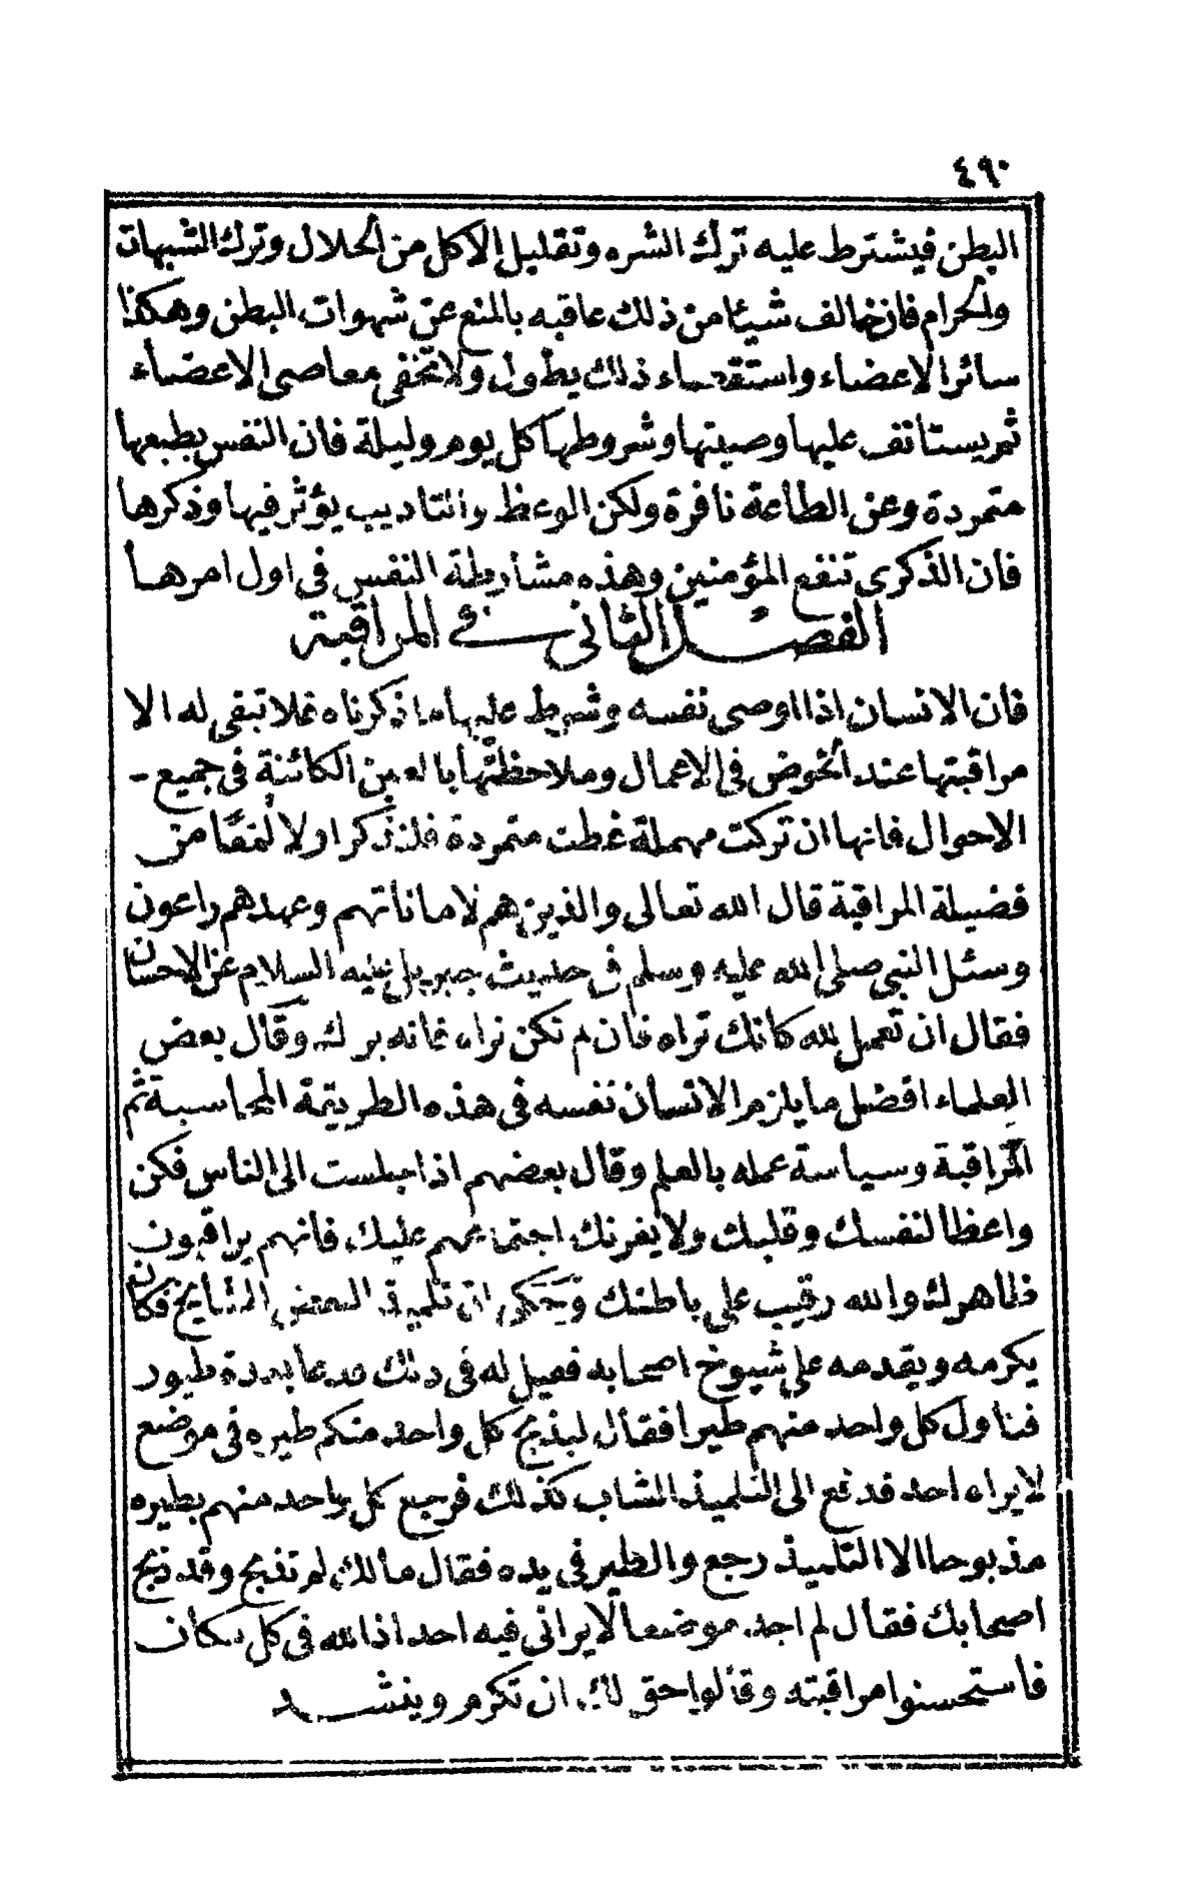 ٤٩٠
البطن فيشترط عليه ترك الشره وتقليل الاكل من الحلال وترك الشبهات
والحرام فان خالف شيئا من ذلك عاقبه بالمنع عن شهوات البطن وهكذا
سائر الاعضاء واستقصاء ذلك يطول ولا تخفى معاصى الاعضاء
ثم يستانف عليها وصيتها وشروطها كل يوم وليلة فان النفس بطبعها
متمردة وعن الطاعة نافرة ولكن الوعظ والتاديب يؤثر فيها وذكرها
فان الذكرى تنفع المؤمنين وهذه مشارطة النفس فى اول امرها
الفصل الثانى فى المراقبة
فان الانسان اذا اوصى نفسه وشرط عليها ما ذكرناه فلا تبقى له الا
مراقبتها عند الخوض فى الاعمال وملاحظتها بالعين الكائنة فى جميع -
الاحوال فانها ان تركت مهملة غطت متمردة فلنذكر اولا لمعًا من
فضيلة المراقبة قال الله تعالى والذين هم لاماناتهم وعهدهم راعون
وسئل النبى صلى الله عليه وسلم فى حديث جبريل عليه السلام عن الاحسان
فقال ان تعمل لله كانك تراه فان لم تكن تراه فانه يراك وقال بعض
العلماء افضل ما يلزم الانسان نفسه فى هذه الطريقة المحاسبة ثم
المراقبة وسياسة عمله بالعلم وقال بعضهم اذا جلست الى الناس فكن
واعظا لنفسك وقلبك ولا يغرنك اجتماعهم عليك فانهم يراقبون
ظاهرك والله رقيب على باطنك وحكى ان تلميذ البعض المشايخ فكان
يكرمه ويقدمه على شيوخ اصحابه فقيل له فى ذلك فدعا بعدة طيور
فناول كل واحد منهم طيرا فقال ليذبح كل واحد منكم طيره فى موضع
لا يراه احد فدفع الى التلميذ الشاب كذلك فرجع كل واحد منهم بطيره
مذبوحا الا التلميذ رجع والطير فى يده فقال مالك لم تذبح وقد ذبح
اصحابك فقال لم اجد موضعا لا يرانى فيه احد اذ الله فى كل مكان
فاستحسنوا مراقبته وقالوا حق لك ان تكرم وينشد